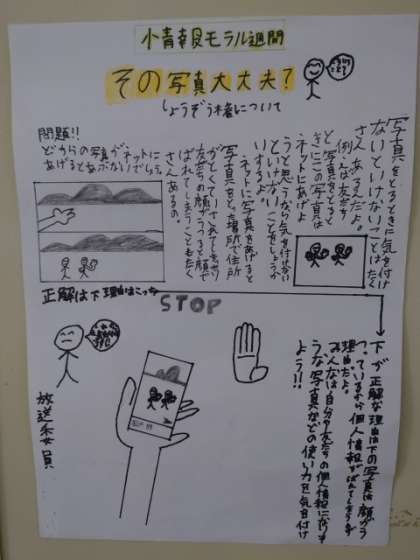 情報モラル週間
その写真大丈夫?
しょうぞう権について
写真をとるときに気を付け
ないといけないことはたく
さんあるんだよ。
例えば友だち
と写真をとると
きにこの写真は
ネットにあげよ
うと思うなら気を付けない
といけないことをしょうか
いするよ。
ネットに写真をあげると
写真をとった場所で住所
友だちの顔がうつると顔で
ばれてしまうこともたく
さんあるの。
問題!!
どちらの写真がネットに
あげるとあぶないでしょう。
正解は下 理由はこっち
STOP
下が正解な理由は下の写真は顔がう
つっているから個人情報がばれてしまうのが
理由だよ。
みんなは自分や友だちの個人情報になりそ
うな写真などの使い方を気を付け
よう!!
放送委員